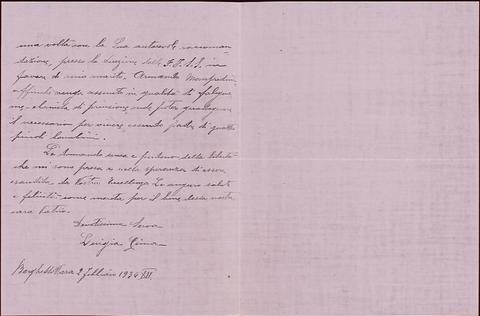 una volta con la Sua autorevole raccoman
dazione, presso la direzione della
favore di mio marito, Armando
affinché venga assunto in qualità di
me onde poter guadagnare
il necessario per vivere essendo padre di quattro
piccoli bambini.
Le domando scusa e perdono della libertà
che mi sono presa e nella speranza di essere
esaudita da Vostra Eccellenza Le auguro salute
e felicità come merita per il bene della nostra
cara Patria.
Devotissima Serva
Luigia
2 Febbraio 1934 XII.